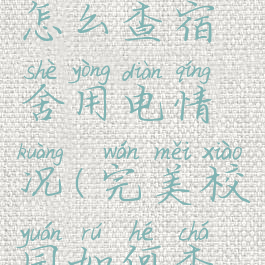 怎么查宿
shè yòng diàn qíng
舍用电情
kuàng wán měi xiào
况(完美校
yuán rú hé chá
园如何查